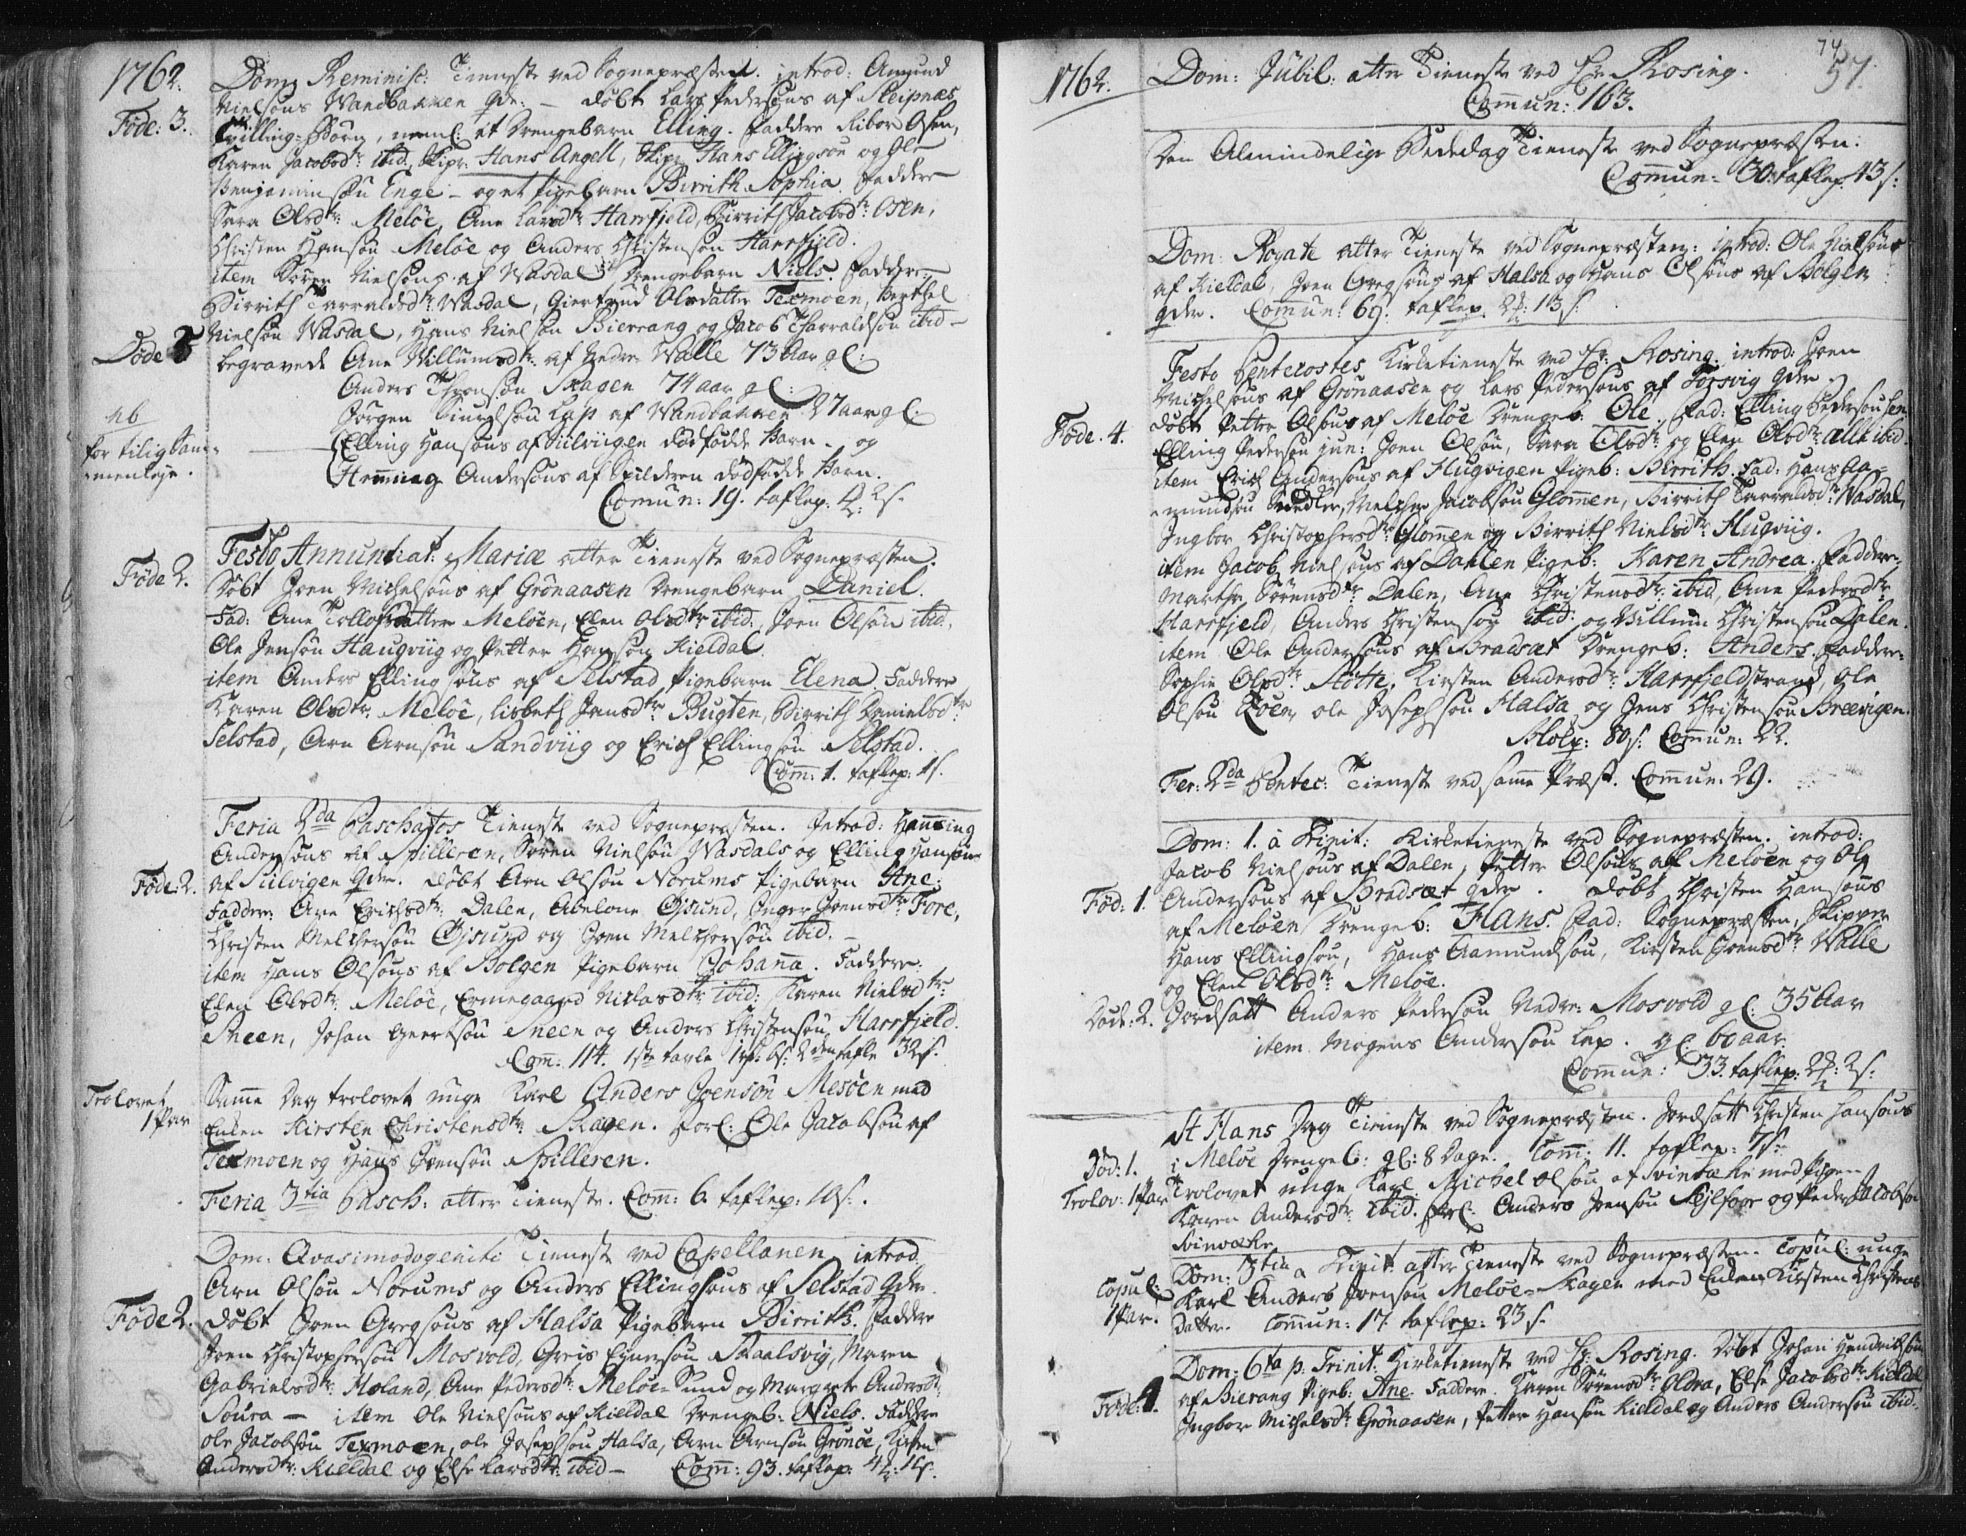 1762.
Dom: Reminisc: Tieneste ved Sognepræsten. introd: Amund
Nielsøns Wandbakken qde: – døbt Lars Pedersøns af Sleipnæs
Føde: 3.
Tvilling-Børn, neml: et Drengebarn Elling. Faddere Ribor Olsen,
Karen Jacobsdtr: ibid, Skipr: Hans Angell, Skipr Hans Ellingsøn og Ole
Benjaminsøn Enge – og et Pigebarn Birrith Sophia. Faddere
Sara Olsdtr: Meløe, Ane Larsdtr: Harrfjeld, Birrith Jacobsdtr: Osen,
Christen Hansøn Meløe og Anders Christensøn Harrfjeld.
item Søren Nielsøns af Wasdal Drengebarn Niels. Faddere:
Birrith Tarraldsdtr: Wasdal, Giertrud Olsdatter Texmoen, Berthel
Nielsøn Wasdal, Hans Nielsøn Bierrang og Jacob Tharraldsøn ibid –
Døde 5
begravede Ane Willumsdtr: af Nedre Walle 73 Aar gl:
Anders Thronsøn Skagen 74 aar gl:
Jørgen Lap af Wandbakken 27 aar gl:
nb
for tilig
Elling Hansøns af Siilviigen dødfødde Barn – og
Hemming Andersøns af Spilderen dødfødde Barn.
Comun: 19. taflep: 2 s.
Festo Annuntiat: Mariæ atter Tieneste ved Sognepræsten.
Føde 2.
Døbt Joen Michelsøns af Grønaasen Drengebarn Daniel.
Fad: Ane Tollofsdatter Meløen, Elen Olsdtr ibid:, Joen Olsøn ibid,
Ole Jensøn Haugviig og Petter Hansøn Kieldal.
item Anders Ellingsøns af Selstad Pigebarn Elena Faddere
Karen Olsdtr: Meløe, Lisbeth Jensdtr: Bugten, Birrith Danielsdtr:
Selstad, Arn Arnsøn Sandviig og Erich Ellingsøn Selstad.
Com: 1. taflep: 1 s.
Feria 2da Paschatos Tieneste ved Sognepræsten. Introd: Hemming
Andersøns af Spilleren, Søren Nielsøn Wasdals og Elling Hansøns
af Siilvigen qder. døbt Arn Olsøn Norums Pigebarn Ane.
Føde: 2.
Fadder: Ane Erichsdtr: Dalen, Abelone Øjsund, Inger Joensdtr: Fore,
Christen Melchersøn Øjsund og Joen Melchersøn ibid. –
item Hans Olsøns af Bolgen Pigebarn Johanna. Faddere:
Elen Olsdtr: Meløe, Ermegaard Niclasdtr: ibid: Karen Nielsdtr:
Neen, Johan Geertsøn Neen og Anders Christensøn Harrfjeld.
Com: 114. 1ste tavle 6 s: 2den tafle 32 s.
Trolovet
1 Par
Samme Dag trolovet unge Karl Anders Joensøn Meløen med
Enken Kirsten Christensdtr: Skagen. Forl: Ole Jacobsøn af
Texmoen og Hans Joensøn Spilleren.
Feria 3tia Pasch: atter Tieneste. Com: 6. taflep: 10 s.
Dom: Qvasimodogeniti Tieneste ved Capellanen, introd.
Arn Olsøn Norums og Anders Ellingsøns af Selstad qder.
Føde 2.
Døbt Joen Gregsøns af Halsa Pigebarn Birrith. Faddere
Joen Christophersøn Mosvold, Greis Einersøn Skaalsvig, Maren
Gabrielsdtr: Holand, Ane Pedersdtr: Meløe-Sund og Margrete Andersdtr:
Soura – item Ole Nielsøns af Kieldal Drengeb: Niels. Faddere
Ole Jacobsøn Texmoen, Ole Josephsøn Halsa, Arn Arnsøn Grønøe, Kirsten
Andersdtr: Kieldal og Else Larsdtr: ibid – Com: 93. taflep: 4

74
57.
1762.
Dom: Jubil: atter Tieneste ved Hr Rosing.
Comun: 163.
Den Almindelige Bededag Tieneste ved Sognepræsten:
Comun: 30. taflep. 43 s:
Dom: Rogate atter Tieneste ved Sognepræsten: introd: Ole Nielsøns
af Kieldal, Joen Gregsøns af Halsa og Hans Olsøns af Bolgen
qder. Comun: 69. taflep. 2 13 s:
Festo Pentecostes Kirketieneste ved Hr: Rosing. introd: Joen
Michelsøns af Grønaasen og Lars Pedersøns af qder
Føde. 4.
døbt Petter Olsøns af Meløe Drengeb: Ole. Fad: Elling Pedersøn sen,
Elling Pedersøn jun: Joen Olsøn, Sara Olsdtr: og Elen Olsdtr: alle ibid.
item Erich Andersøns af Hugvigen Pigeb: Birrith. Fad: Hans Aa-
mundsøn Melcher Jacobsøn Glomen, Birrith Tarraldsdtr: Wasdal,
Ingbor Christophersdtr: Glomen og Birrith Nielsdtr: Hugviig.
item Jacob Nielsøns af Dahlen Pigeb: Karen Andrea. Faddere:
Marthe Sørensdtr: Dalen, Ane Christensdtr: ibid, Ane Pedersdtr:
Harrfjeld, Anders Christensøn ibid: og Willum Christensøn Dalen.
item Ole Andersøns af Bradsæt Drengeb: Anders. Faddere:
Sophie Olsdtr: Støtte, Kirsten Andersdtr: Harrfjeldstrand, Ole
Olsøn Roen, Ole Josephsøn Halsa og Jens Christensøn Breevigen.
80 s: Comun: 22.
Fer: 2da Pentec: Tieneste ved samme Præst. Comun: 29.
Dom: 1. a Trinit: Kirketieneste ved Sognepræsten. introd:
Jacob Nielsøns af Dalen, Petter Olsøns af Meløen og Ole
Andersøns af Bradsæt qder. Døbt Christen Hansøns
Fød: 1.
af Meløen Drengeb: Hans. Fad: Sognepræsten, Skipper
Hans Ellingsøn, Hans Aamundsøn, Kirsten Joensdtr: Walle
og Elen Olsdtr: Meløe.
Døde: 2.
Jordsatt Anders Pedersøn Nedre Mosvold gl: 35 Aar
item Mogens Andersøn Lap. gl: 60 aar.
Comun: 33. taflep: 2 2 s:
St Hans Dag Tieneste ved Sognepræsten. Jordsatt Christen Hansøns
Død: 1.
i Meløe Drengeb: gl: 8 Dage. Com: 11. taflep: 7 s.
Trolov: 1 Par
Trolovet unge Karl Michel Olsøn af Svinvær med Pigen
Karen Andersdtr: ibid. Forl: Anders Joensøn Selfoer og Peder Jacobsøn
Svinvær.
Dom: 3tia a Trinit: atter Tieneste ved Sognepræsten. Copul: unge
Copul:
1 Par.
Karl Anders Joensøn Meløe-Skagen med Enken Kirsten Christens
Datter. Comun: 17. taflep: 23 s.
Dom: 6ta p. Trinit: Kirketieneste ved Hr: Rosing. Døbt Johan Hendrichsøn
Føde: 1.
af Bierang Pigeb: Ane. Faddere. Karen Sørensdtr: Oldra, Else Jacobsdtr: Kieldal
Ingbor Michelsdtr: Grønaasen, Petter Hansøn Kieldal og Anders Andersøn ibid.